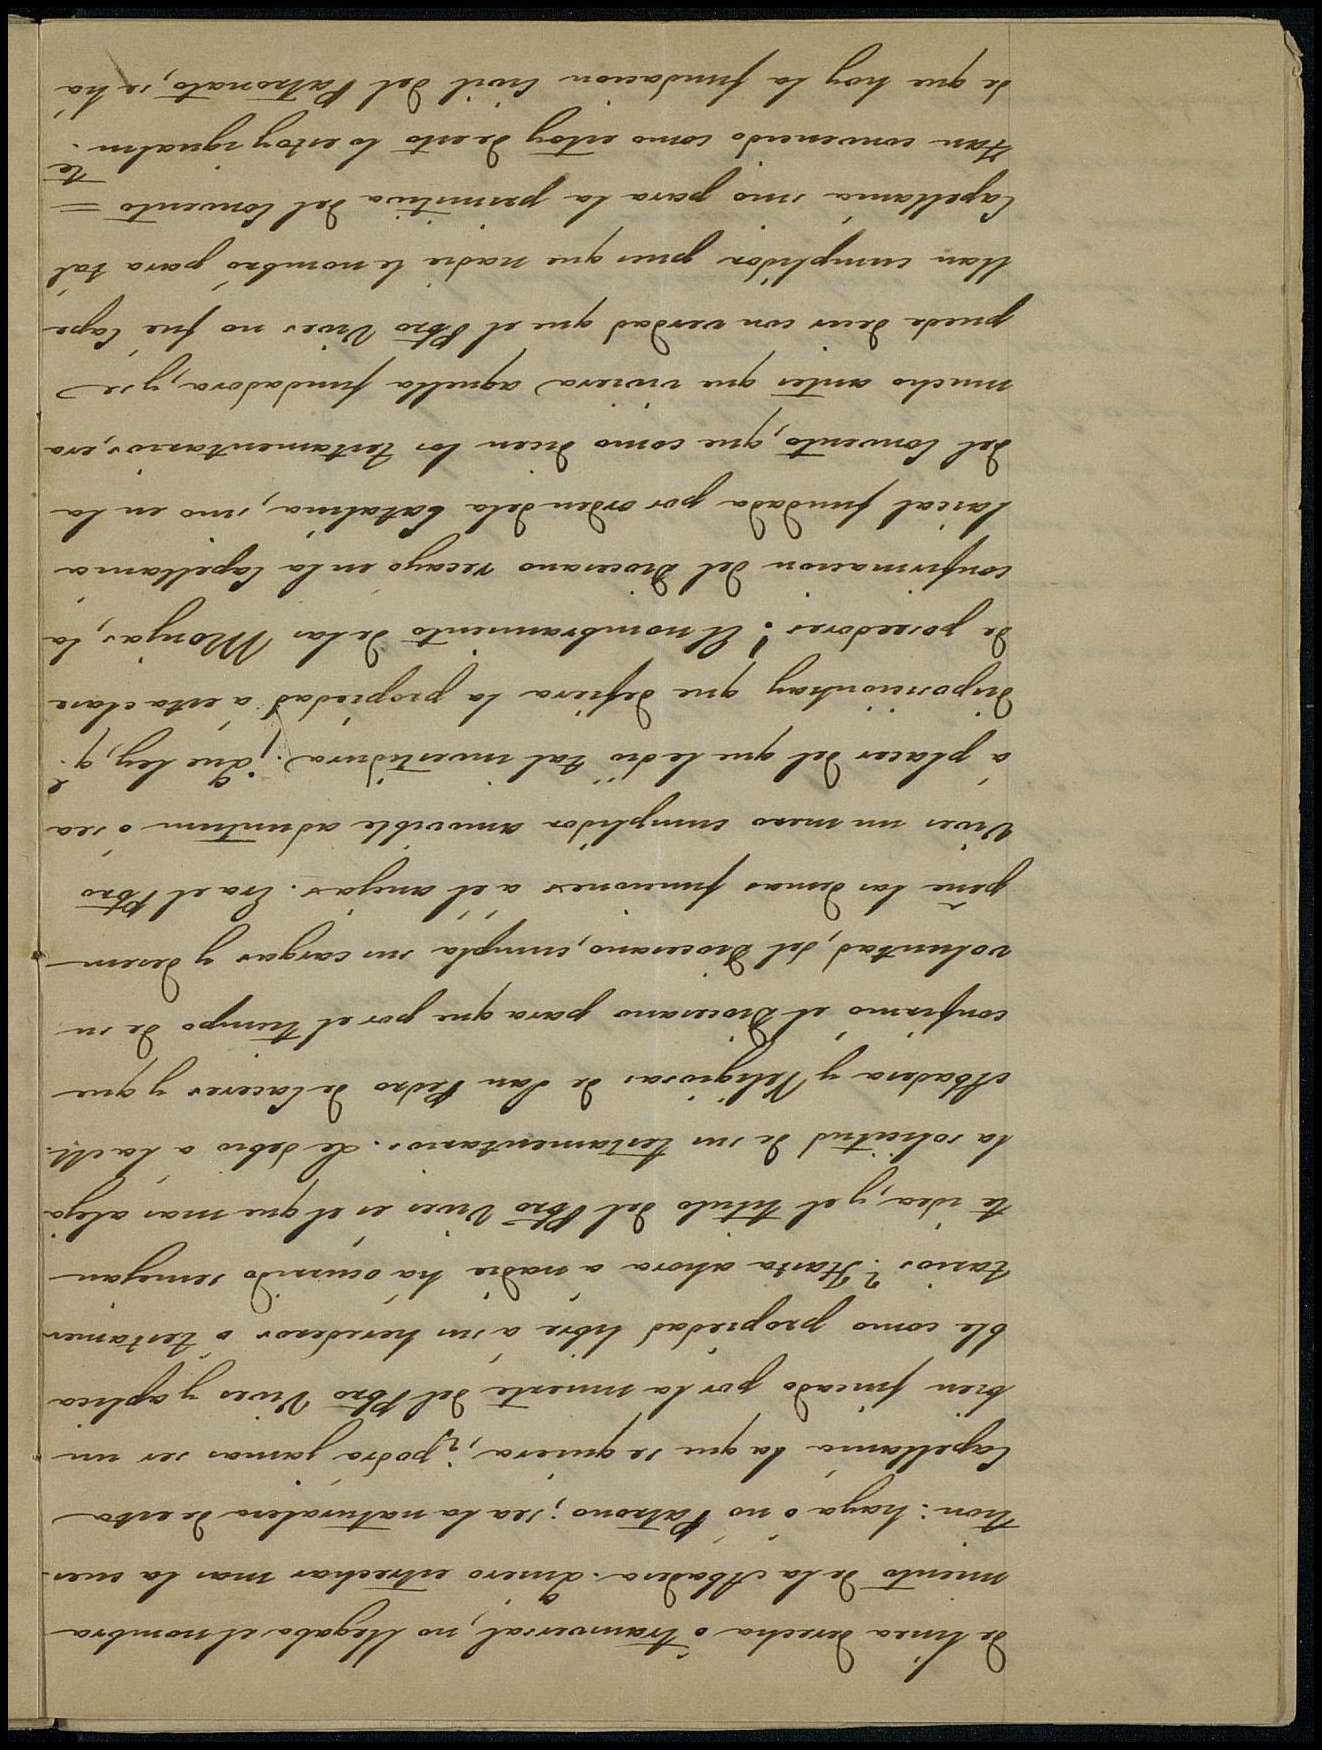 de linea derecha o transversal, no llegaba el nombra
miento de la Abadesa. Quiero estrechar mas la cues
tion: haya ó no Patrono; sea la naturaleza de esta
Capellanía la que se quiera, ¿podra jamas ser un
bien fincado por la muerte del Pbro Vives y aplica
ble como propiedad libre á sus herederos o testamen
tarios? Hasta ahora á nadie há ocurrido semejan
te idea, y el titulo del Pbro Vives es el que mas aleja
la solicitud de sus testamentarios. Le debio a la M.
Abadesa y Religiosas de San Pedro de Caceres y que
confirmó el Diocesano para que por el tiempo de su
voluntad, del Diocesano, cumpla sus cargas y desem
peñe las demas funciones a él anejas. Era el Pbro
Vives un mero cumplidor amovible adnutum o sea
á placer del que le dió tal investidura. ¡Que ley, q.e
disposicion hay que defiera la propiedad á esta clase
de poseedores! El nombramiento de las Monjas, la
confirmacion del Diocesano recayó en la Capellanía
laical fundada por orden dela Catalina, sino en la
del Convento, que como dicen los testamentarios, era
mucho antes que viviera aquella fundadora, y se
puede decir con verdad que el Pbro Vives no fue Cape
llan cumplidor pues que nadie le nombró para tal
Capellania sino para la primitiva del Convento =
Tan convencido como estoy de esto lo estoy igualm.te
de que hoy la fundacion Civil del Patronato, se há